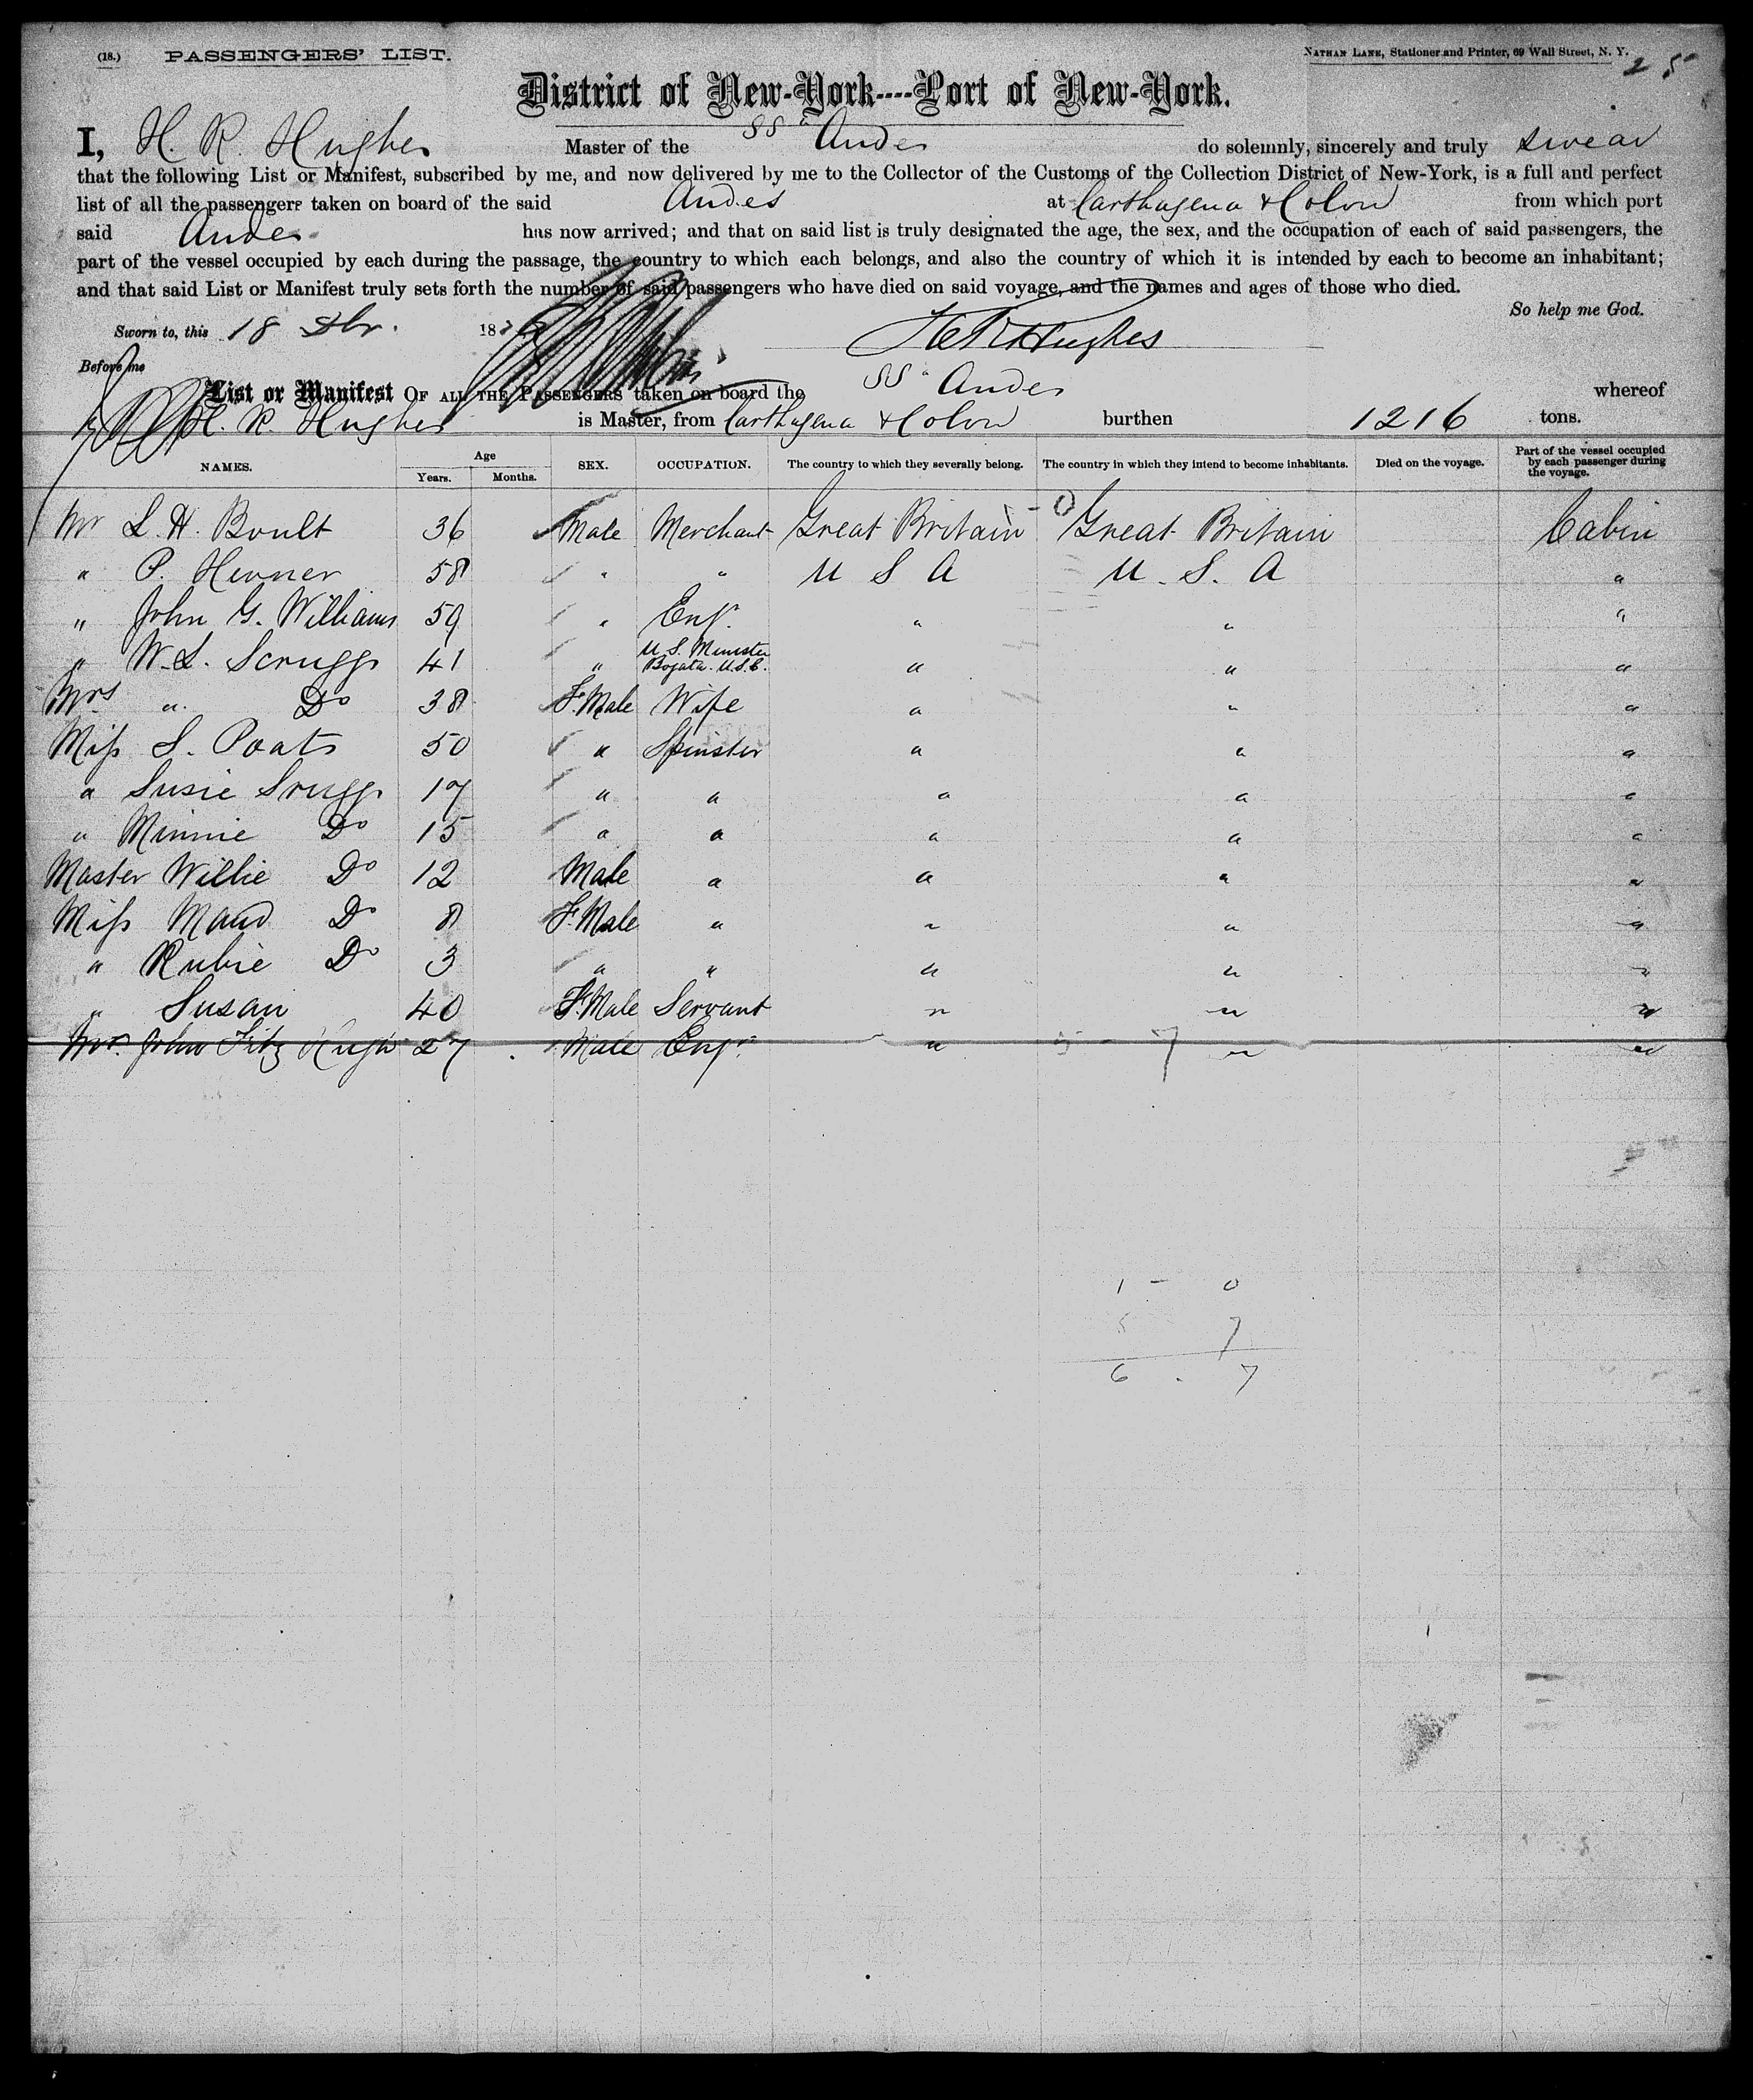 (18.) PASSENGERS' LIST. NATHAN LANE, Stationer and Printer, 69 Wall Street, N. Y.
25
District of New-York----Port of New-York.
I, H. R. Hughes Master of the SS "Andes do solemnly, sincerely and truly swear
that the following List or Manifest, subscribed by me, and now delivered by me to the Collector of the Customs of the Collection District of New-York, is a full and perfect
list of all the passengers taken on board of the said Andes at Carthagena & Colon from which port
said Andes has now arrived; and that on said list is truly designated the age, the sex, and the occupation of each of said passengers, the
part of the vessel occupied by each during the passage, the country to which each belongs, and also the country of which it is intended by each to become an inhabitant;
and that said List or Manifest truly sets forth the number of said passengers who have died on said voyage, and the names and ages of those who died.
So help me God.
Sworn to, this 18 187 H R Hughes
Before me
List or Manifest OF ALL THE PASSENGERS taken on board the SS " Andes whereof
H. R. Hughes is Master, from Carthagena & Colon burthen 1216 tons.
NAMES. Age Years. Months. SEX. OCCUPATION. The country to which they severally belong. The country in which they intend to become inhabitants. Died on the voyage. Part of the vessel occupied by each passenger during the voyage.
Mr L. H. Boult 36 Male Merchant Great Britain 1 - 0 Great Britain Cabin
" P. Hevner 58 " " U S A U. S. A "
" John G. Williams 59 " Engr " " "
" W. L. Scruggs 41 " U. S. Minister Bogata. U.S.C. " " "
Mrs " Do 38 F. Male Wife " " "
Miss S. Poats 50 " Spinster " " "
" Susie Sruggs 17 " " " " "
" Minnie Do 15 " " " " "
Master Willie Do 12 Male " " " "
Miss Maud Do 8 F. Male " " " "
" Rubie Do 3 " " " " "
" Susan 40 F. Male Servant " " "
Mr. John Fitz Hugh 27 Male Engr " 5 - 7 " "
1 - 0
5 7
6 . 7